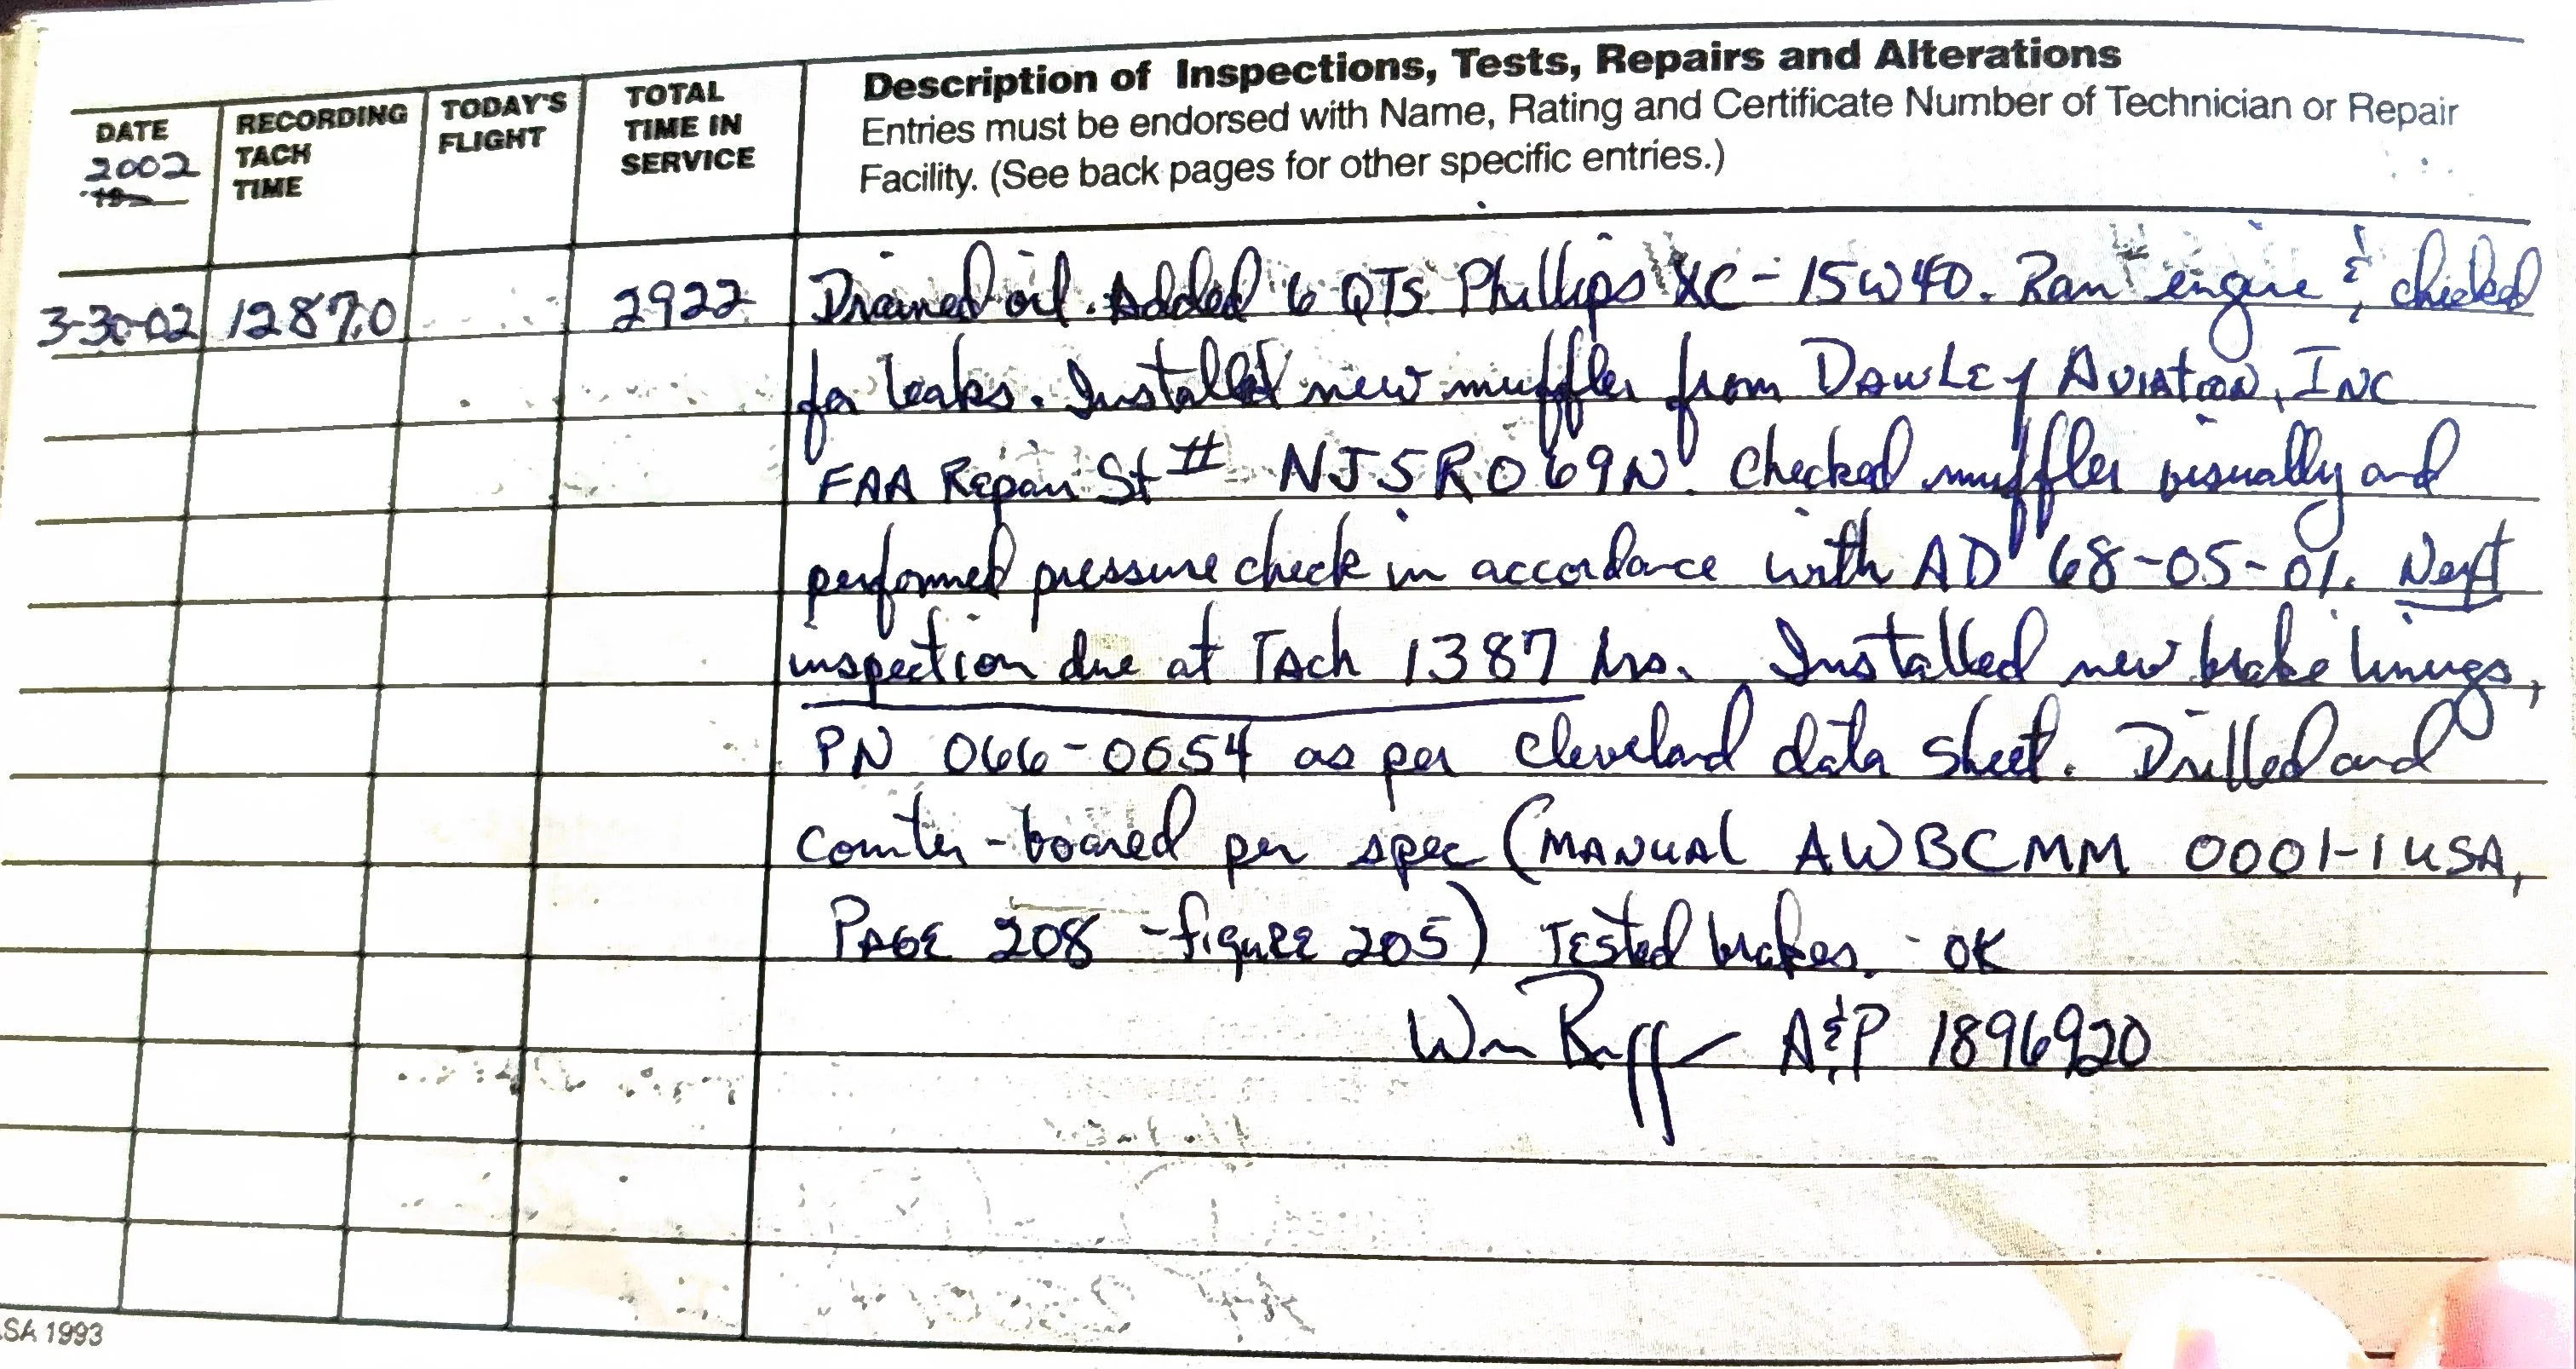 DATE RECORDING TACH TIME TODAY'S FLIGHT TOTAL TIME IN SERVICE
2002
Description of Inspections, Tests, Repairs and Alterations
Entries must be endorsed with Name, Rating and Certificate Number of Technician or Repair
Facility. (See back pages for other specific entries.)
3-30-02 1287.0 2922 Drained oil. Added 6 QTS Phillips XC-15W40. Ran engine & checked
for leaks. Installed new muffler from DAWLEY AVIATION, INC
FAA Repair St # NJ5R069N. Checked muffler visually and
performed pressure check in accordance with AD 68-05-01. Next
inspection due at TAch 1387 hrs. Installed new brake linings,
PN 066-0654 as per Cleveland data sheet. Drilled and
counter-boared per spec (MANUAL AWBCMM 0001-1 USA,
PAGE 208 - figure 205) Tested brakes. - OK
Wm A&P 1896920
SA 1993